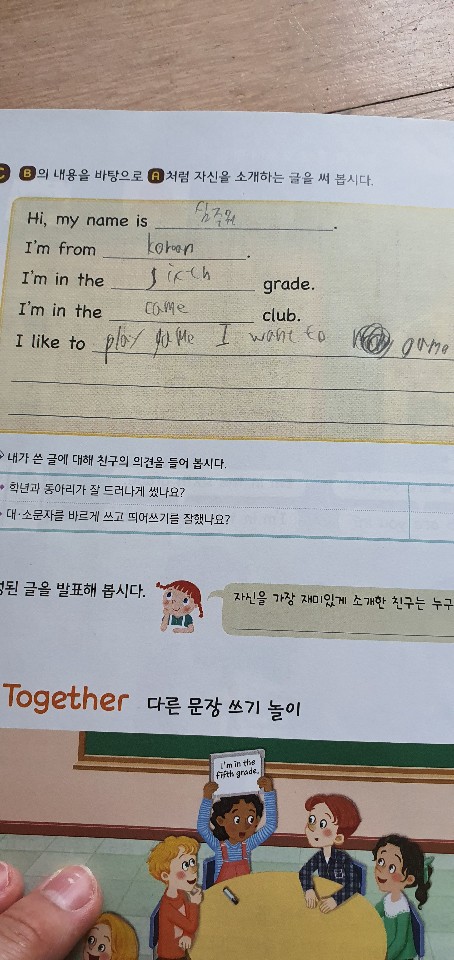 C B의 내용을 바탕으로 A처럼 자신을 소개하는 글을 써 봅시다.
Hi, my name is 심주원.
I'm from korean.
I'm in the sixth grade.
I'm in the came club.
I like to play game I want to game
내가 쓴 글에 대해 친구의 의견을 들어 봅시다.
학년과 동아리가 잘 드러나게 썼나요?
대·소문자를 바르게 쓰고 띄어쓰기를 잘했나요?
성된 글을 발표해 봅시다.
자신을 가장 재미있게 소개한 친구는 누구
Together 다른 문장 쓰기 놀이
I'm in the
fifth grade.